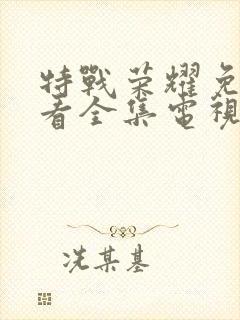 特戰榮耀免
看全集電視
冼某基